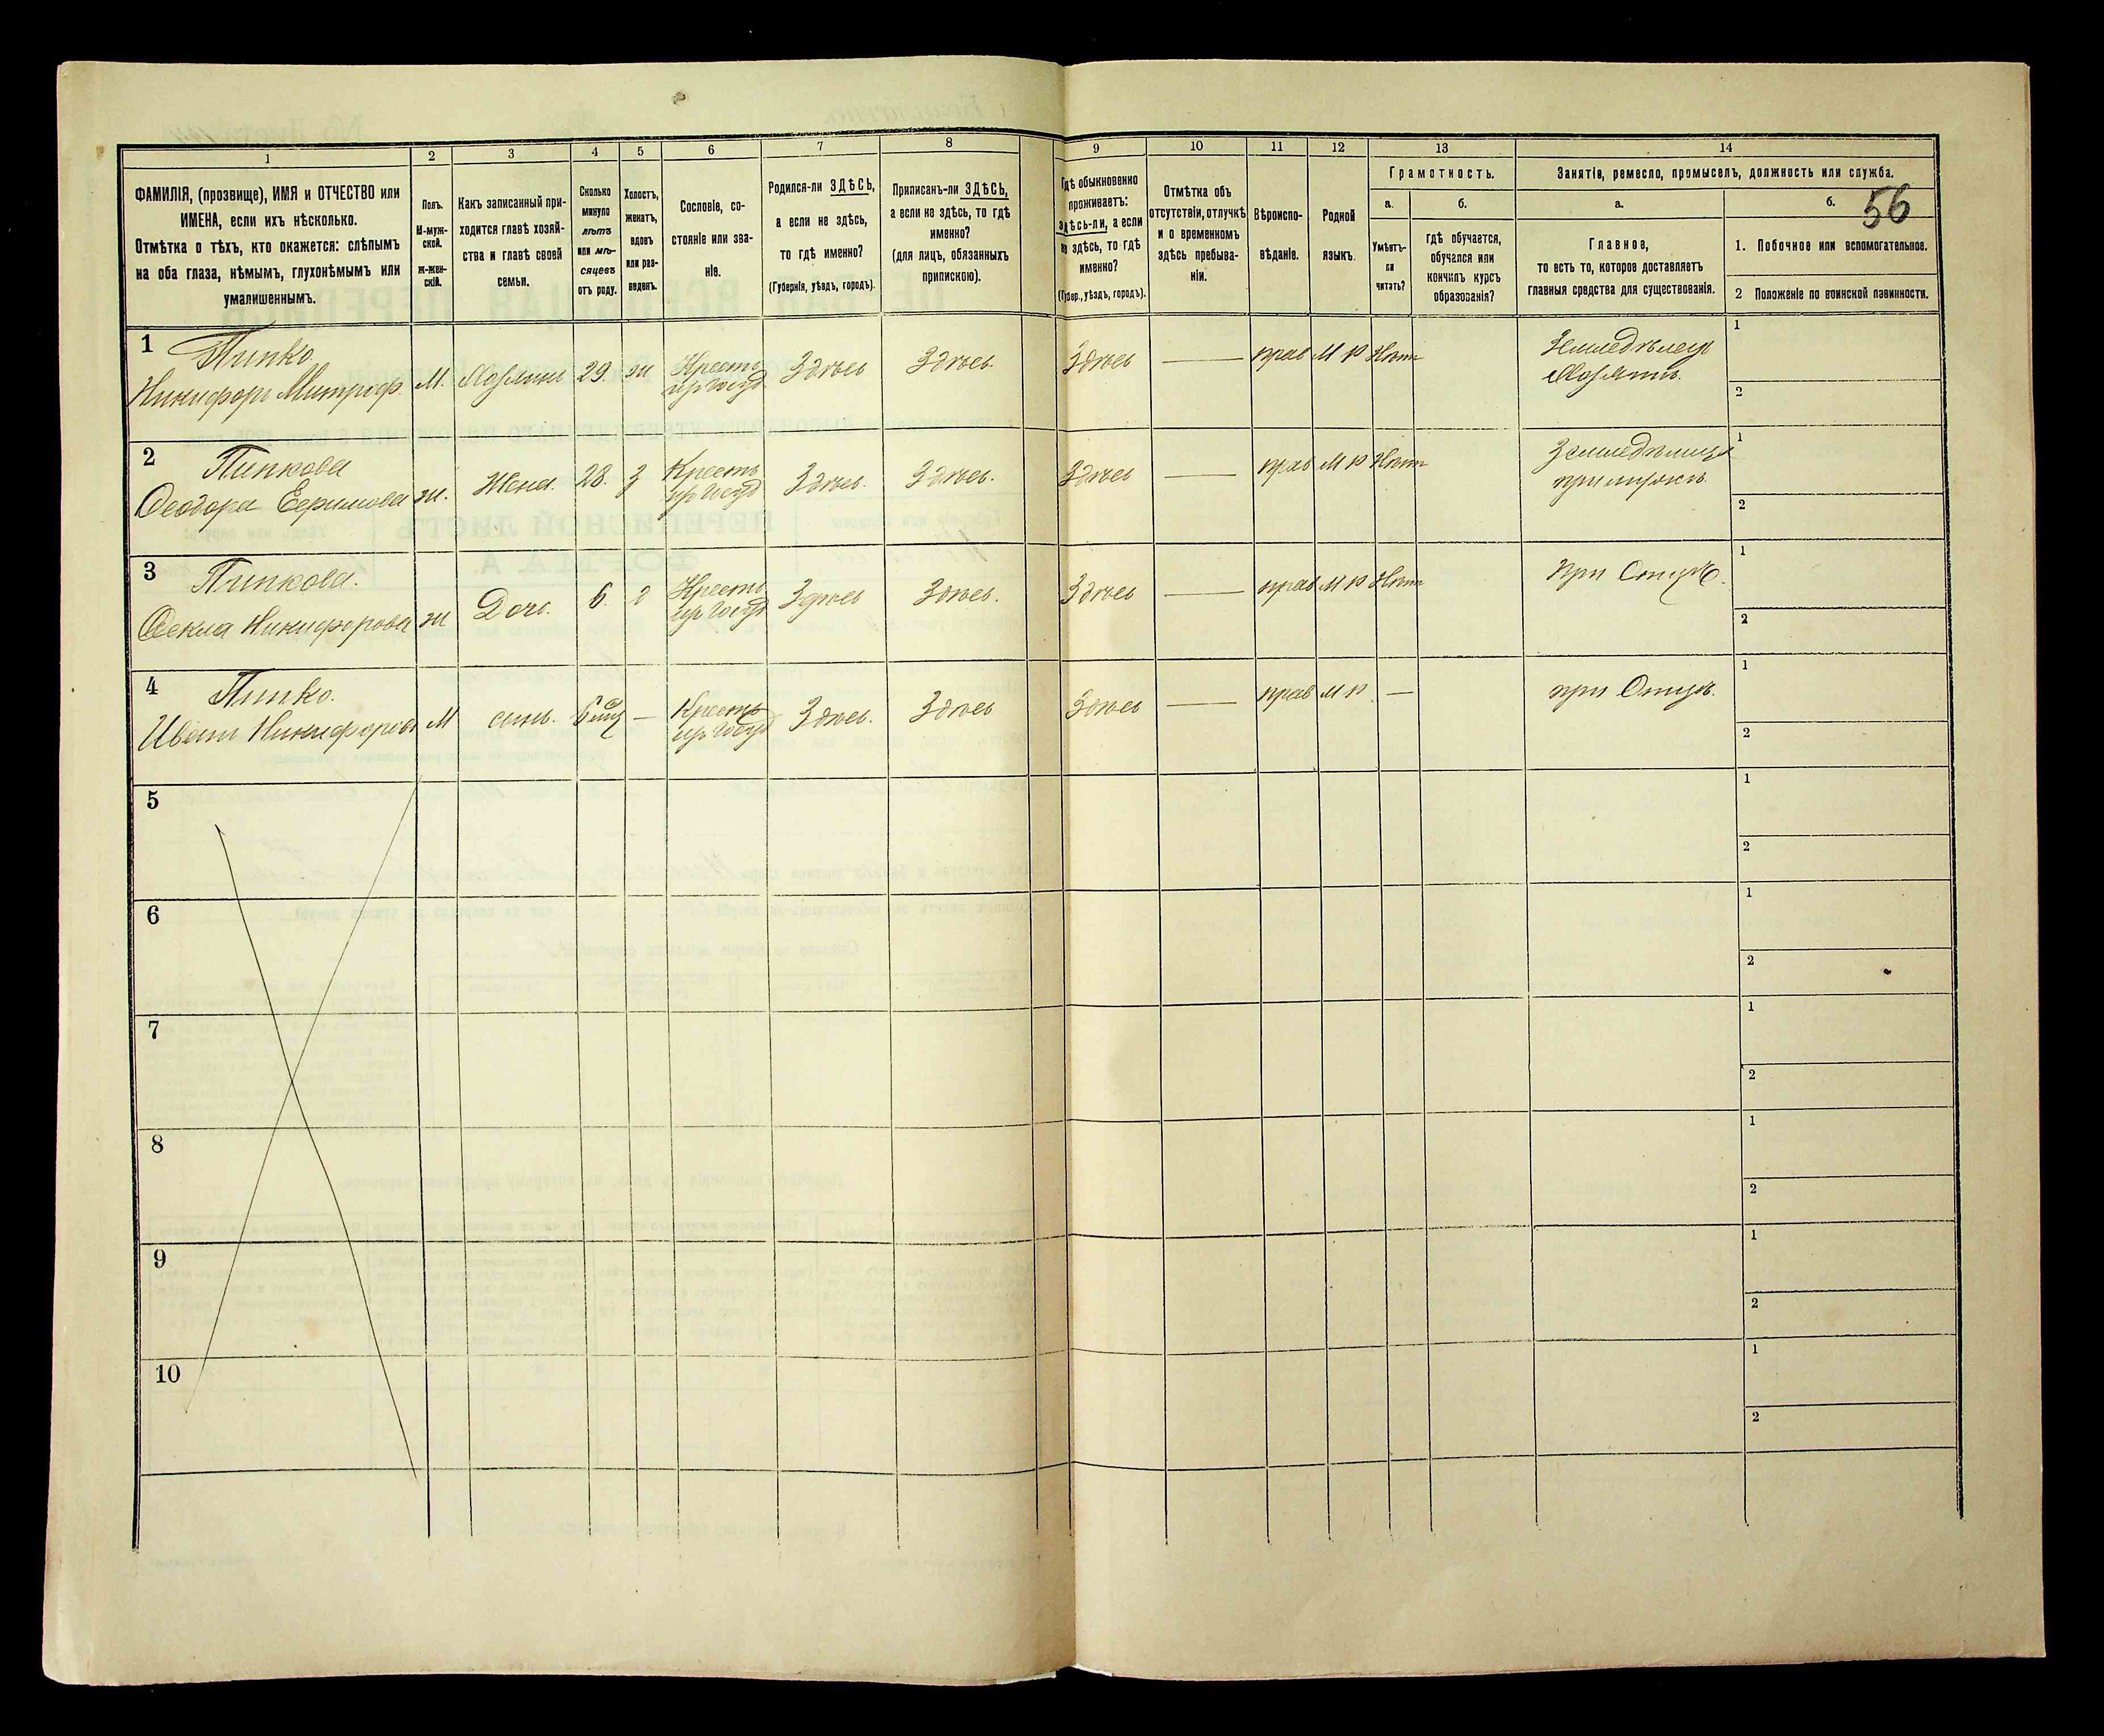 56
1 2 3 4 5 6 7 8 9 10 11 12 13 14
ФАМИЛІЯ, (прозвище), ИМЯ и ОТЧЕСТВО или
ИМЕНА, если ихъ нѣсколько.
Отмѣтка о тѣхъ, кто окажется: слѣпымъ
на оба глаза, нѣмымъ, глухонѣмымъ или
умалишеннымъ.
Полъ.
М-муж-
ской.
Ж-жен-
скій.
Какъ записанный при-
ходится главѣ хозяй-
ства и главѣ своей
семьи.
Сколько
минуло
лѣтъ
или мѣ-
сяцевъ
отъ роду.
Холостъ,
женатъ,
вдовъ
или раз-
веденъ.
Сословіе, со-
стояніе или зва-
ніе.
Родился-ли ЗДѢСЬ,
а если не здѣсь,
то гдѣ именно?
(Губернія, уѣздъ, городъ).
Приписанъ-ли ЗДѢСЬ,
а если не здѣсь, то гдѣ
именно?
(для лицъ, обязанныхъ
припискою).
Гдѣ обыкновенно
проживаетъ:
здѣсь-ли, а если
не здѣсь, то гдѣ
именно?
(Губер., уѣздъ, городъ).
Отмѣтка объ
отсутствіи, отлучкѣ
и о временномъ
здѣсь пребыва-
ніи.
Вѣроиспо-
вѣданіе.
Родной
языкъ.
Грамотность.
а.
Умѣетъ-
ли
читать?
б.
гдѣ обучается,
обучался или
кончилъ курсъ
образованія?
Занятіе, ремесло, промыселъ, должность или служба.
а.
Главное,
то есть то, которое доставляетъ
главныя средства для существованія.
б.
1. Побочное или вспомогательное.
2 Положеніе по воинской повинности.
1 Пипко
Никифоръ Митроф. М. Хозяинъ 29. ж Крестъ Здѣсь Здѣсь. Здѣсь — прав М Р Нѣтъ Земледѣлецъ
Хозяинъ.
1
2
2 Пипкова
Ѳеодора Ефимова ж. Жена. 28. З Крестъ Здѣсь. Здѣсь. Здѣсь — прав М Р Нѣтъ
1
2
3 Пипкова.
Ѳекла Никифорова ж Дочь. 6. Крестъ Здѣсь Здѣсь. Здѣсь — прав М Р Нѣтъ При Отцѣ.
1
2
4 Пипко.
Иванъ Никифоровъ М сынъ. 6 — Крестъ Здѣсь. Здѣсь Здѣсь — прав М Р — при Отцѣ.
1
2
5
1
2
6
1
2
7
1
2
8
1
2
9
1
2
10
1
2